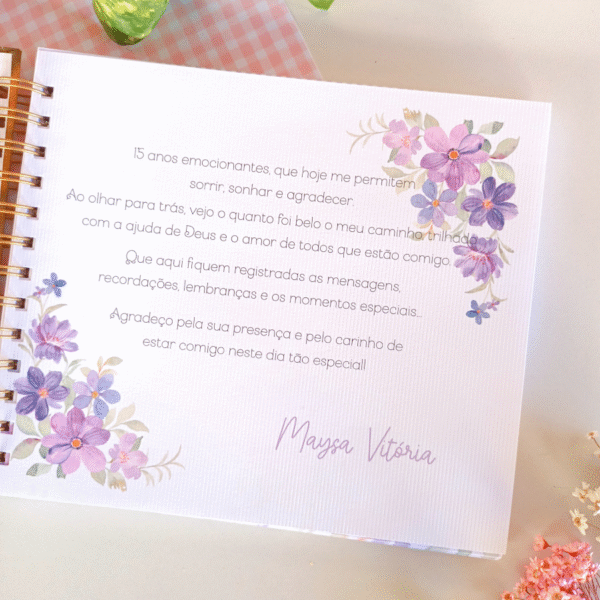 15 anos emocionantes, que hoje me permitem
sorrir, sonhar e agradecer.
Ao olhar para trás, vejo o quanto foi belo o meu caminho trilhado
com a ajuda de Deus e o amor de todos que estão comigo.
Que aqui fiquem registradas as mensagens,
recordações, lembranças e os momentos especiais...
Agradeço pela sua presença e pelo carinho de
estar comigo neste dia tão especial!
Maysa Vitória